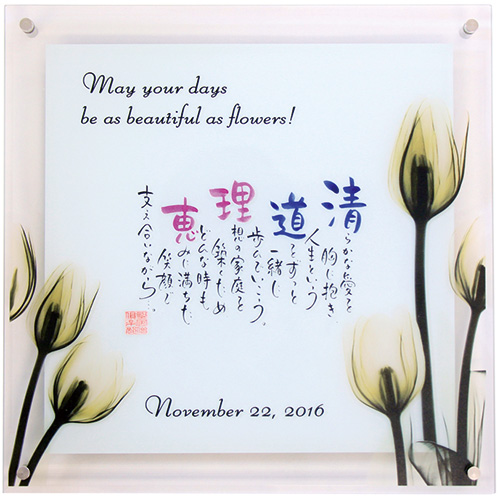 May your days
be as beautiful as flowers!
清らかな愛を
胸に抱き
人生という
道をずっと
一緒に
歩んでいこう。
理想の家庭を
築くため
どんな時も
恵みに満ちた
笑顔で
支え合いながら。
November 22, 2016